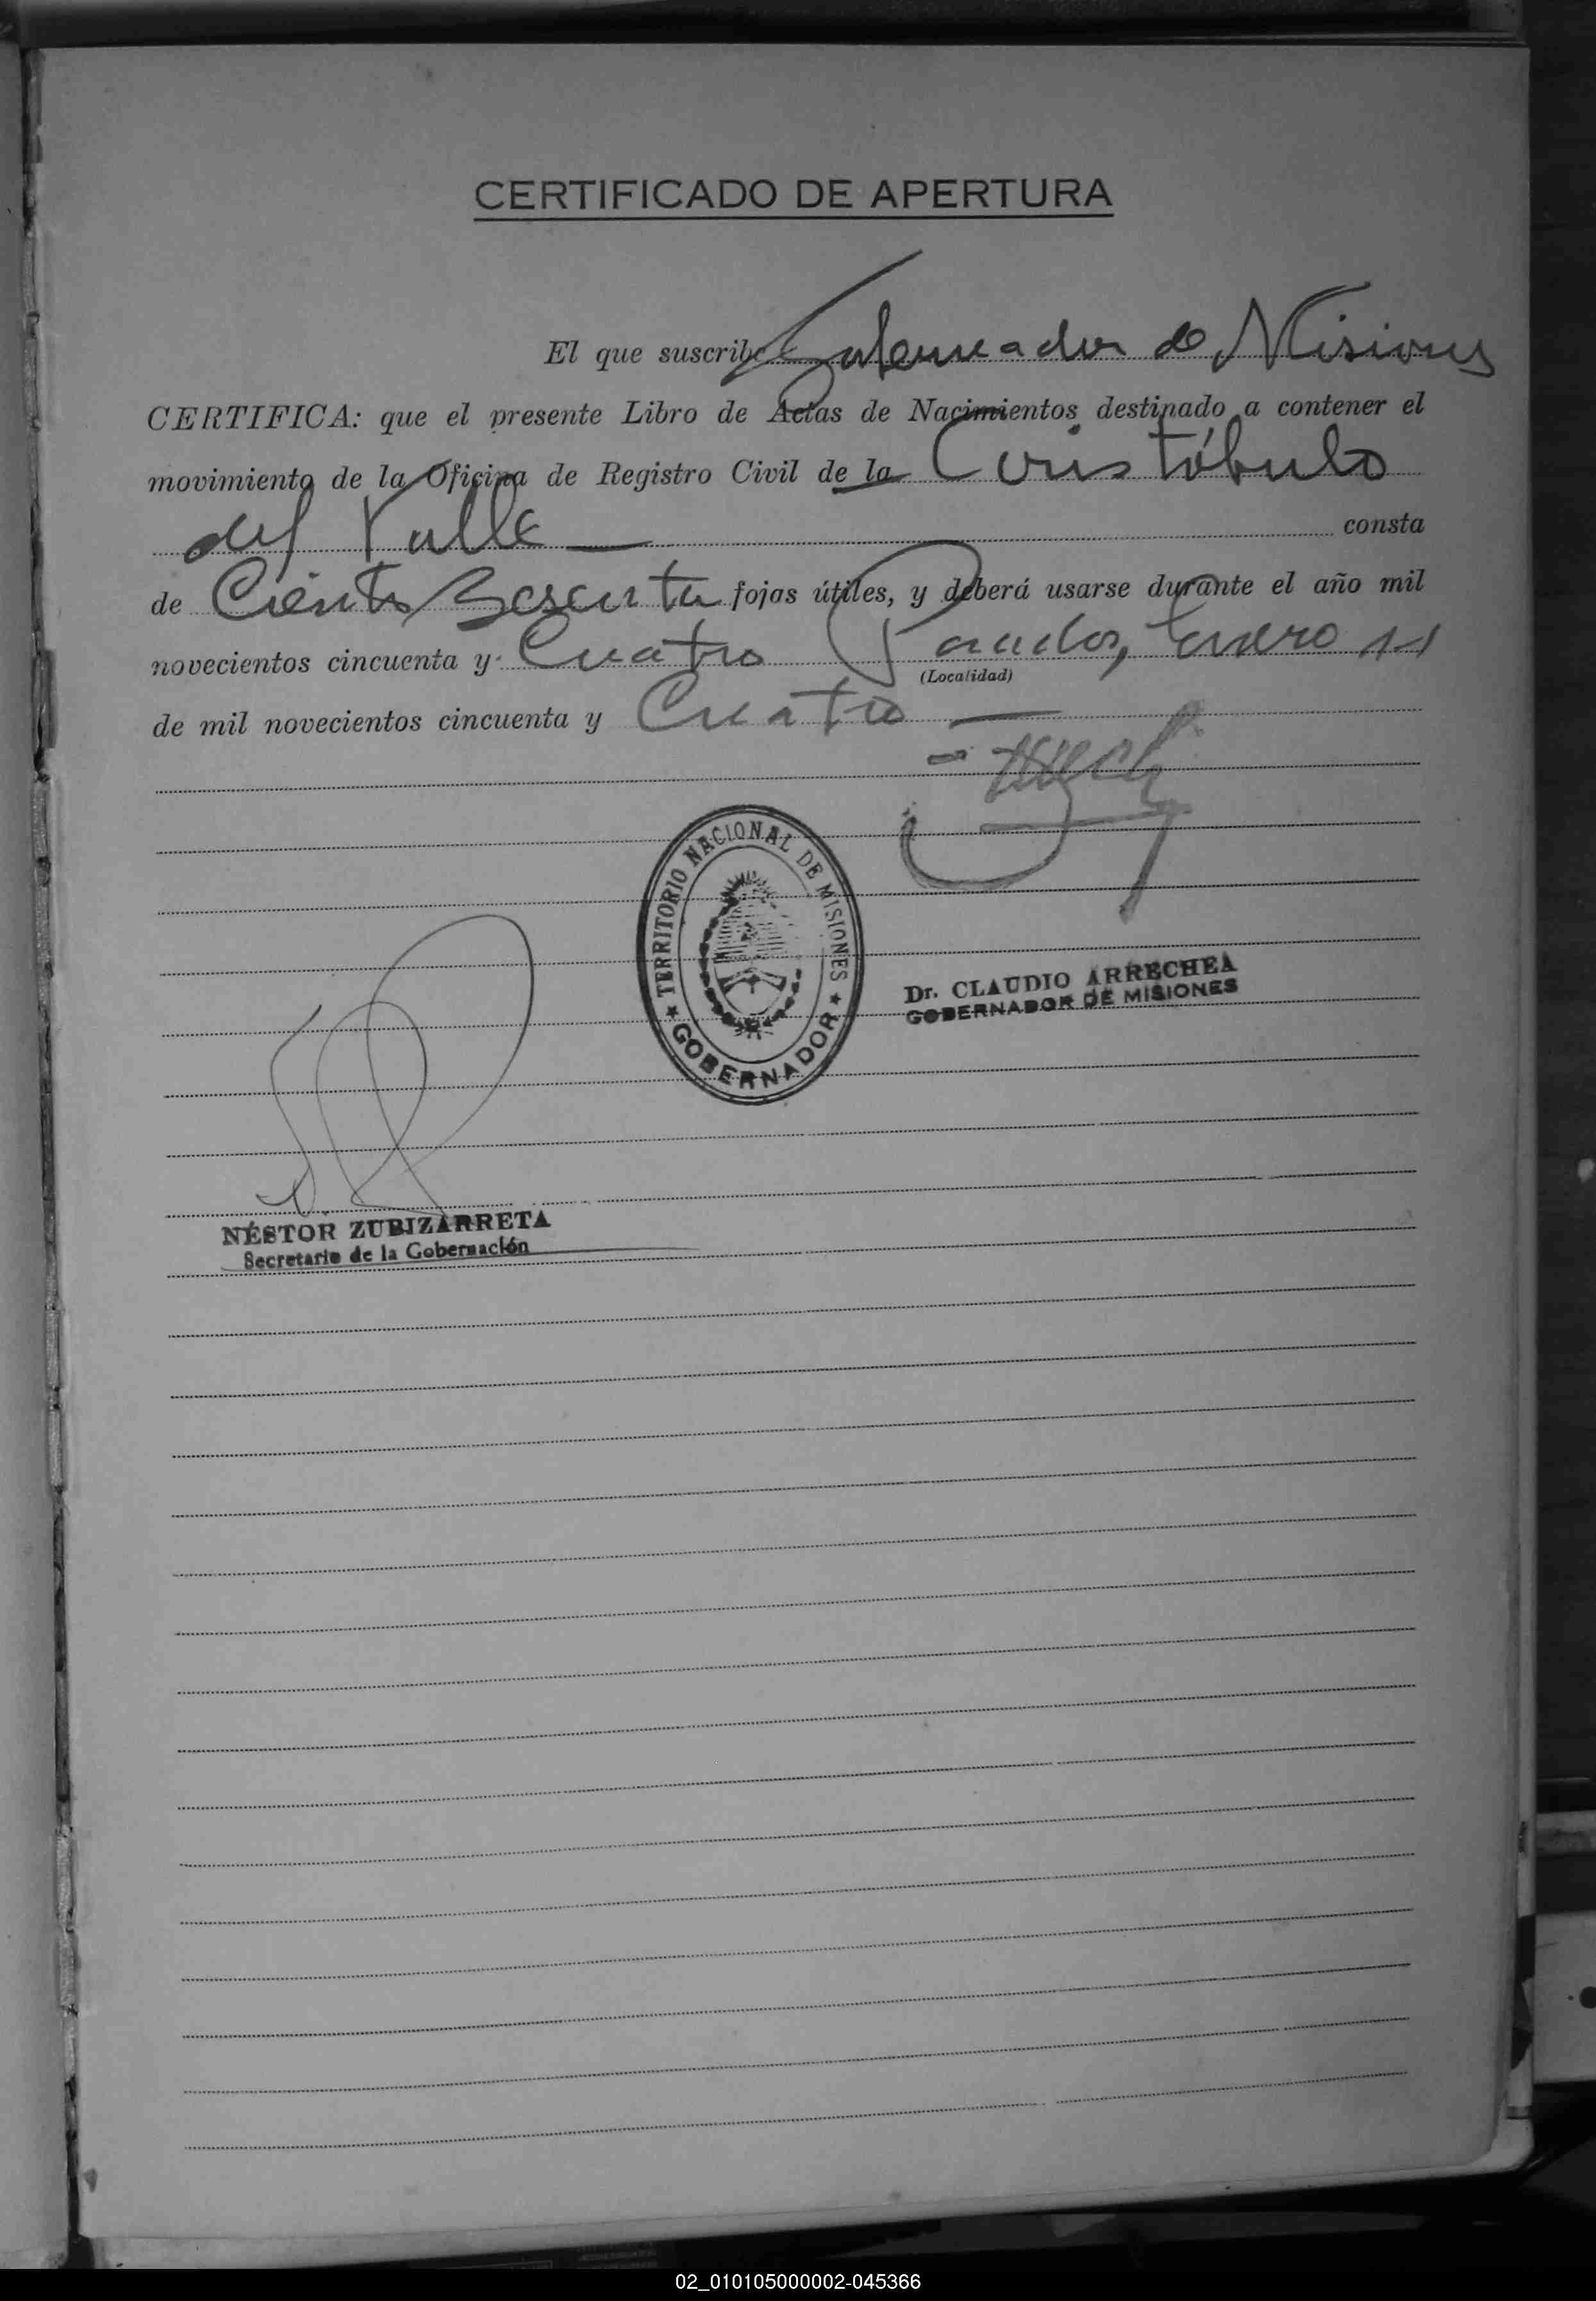 CERTIFICADO DE APERTURA
El que suscribe Gobernador de Misiones
CERTIFICA: que el presente Libro de Actas de Nacimientos destinado a contener el
movimiento de la Oficina de Registro Civil de la Aristóbulo
del Valle consta
de Ciento Sesenta fojas útiles, y deberá usarse durante el año mil
novecientos cincuenta y Cuatro Posadas, Enero 11
(Localidad)
de mil novecientos cincuenta y Cuatro
TERRITORIO NACIONAL DE MISIONES
GOBERNADOR
Dr. CLAUDIO ARRECHEA
GOBERNADOR DE MISIONES
NÉSTOR ZUBIZARRETA
Secretario de la Gobernación
02_010105000002-045366